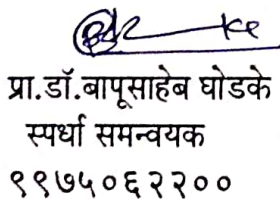 प्रा.डॉ.बापूसाहेब घोडके
स्पर्धा समन्वयक
९९७५०६२२००